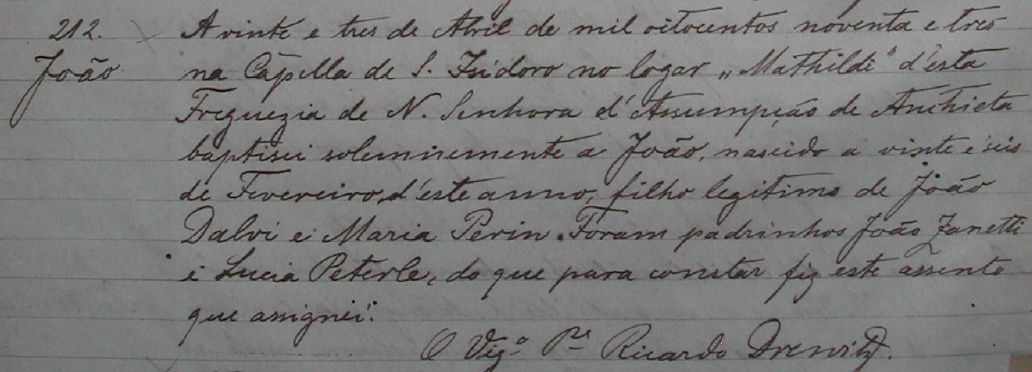 212. A vinte e tres de Abril de mil oitocentos noventa e tres
João na Capella de S. Izidoro no logar „Mathilde" d'esta
Freguezia de N. Senhora d'Assumpção de Anchieta
baptisei solemnemente a João, nascido a vinte e seis
de Fevereiro d'este anno, filho legitimo de João
Dalvi e Maria Perin. Foram padrinhos João Zanetti
e Lucia Peterle, do que para constar fiz este assento
que assignei.
O Vigº Pe Ricardo Drewitz.